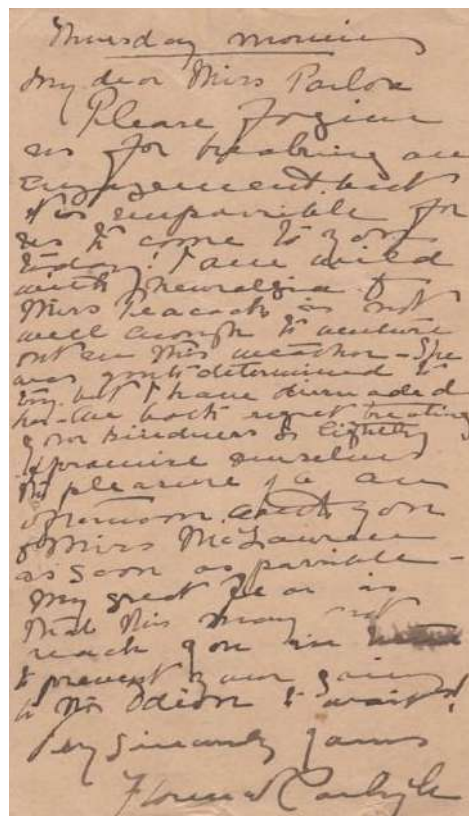 Thursday morning
My dear Miss Parlow
Please forgive
us for breaking our
engagement but
it is impossible for
us to come to you
today! I am wild
with neuralgia &
Miss Peacock is not
well enough to venture
out in this weather - She
was quite determined to
try but I have dissuaded
her - We both regret treating
your kindness so lightly
& promise ourselves
the pleasure of an
afternoon with you
& Miss
as soon as possible -
My great fear is
that this may not
reach you in
to prevent your going
to the Odéon to wait!
Very Sincerely yours
Florence Carlyle